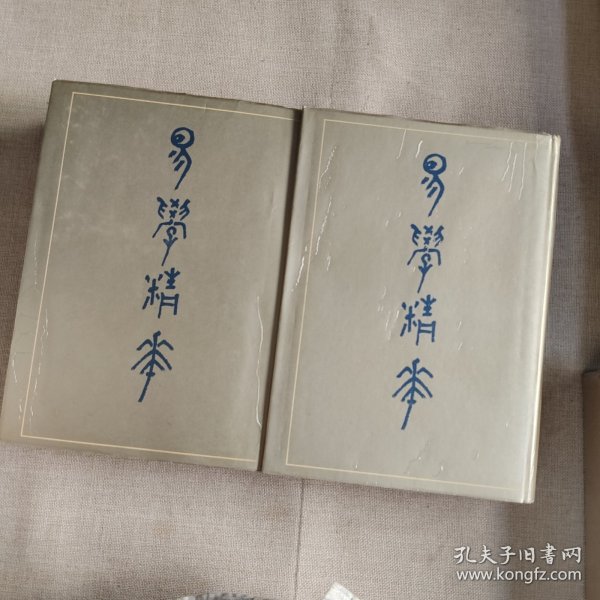 易學精華
易學精華
孔夫子旧书网
www.kongfz.com